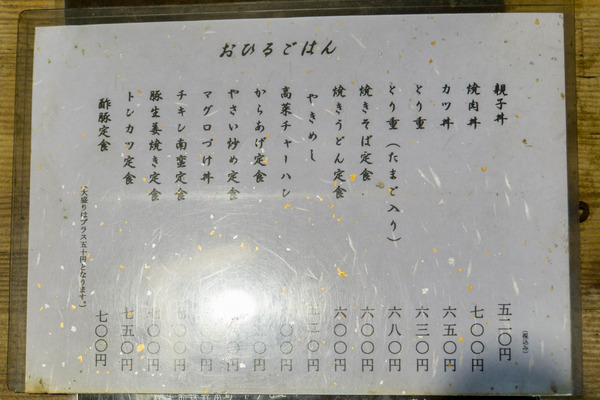 おひるごはん
親子丼 五二〇円
(税込み)
焼肉丼 七〇〇円
カツ丼 六五〇円
とり重 六三〇円
とり重(たまご入り) 六八〇円
焼きそば定食 六〇〇円
焼きうどん定食 六〇〇円
やきめし 二〇円
高菜チャーハン 〇〇円
からあげ定食 〇円
やさい炒め定食 〇円
マグロづけ丼 〇円
チキン南蛮定食 〇〇円
豚生姜焼き定食 〇〇円
トンカツ定食 七五〇円
酢豚定食 七〇〇円
(大盛りはプラス五十円となります。)